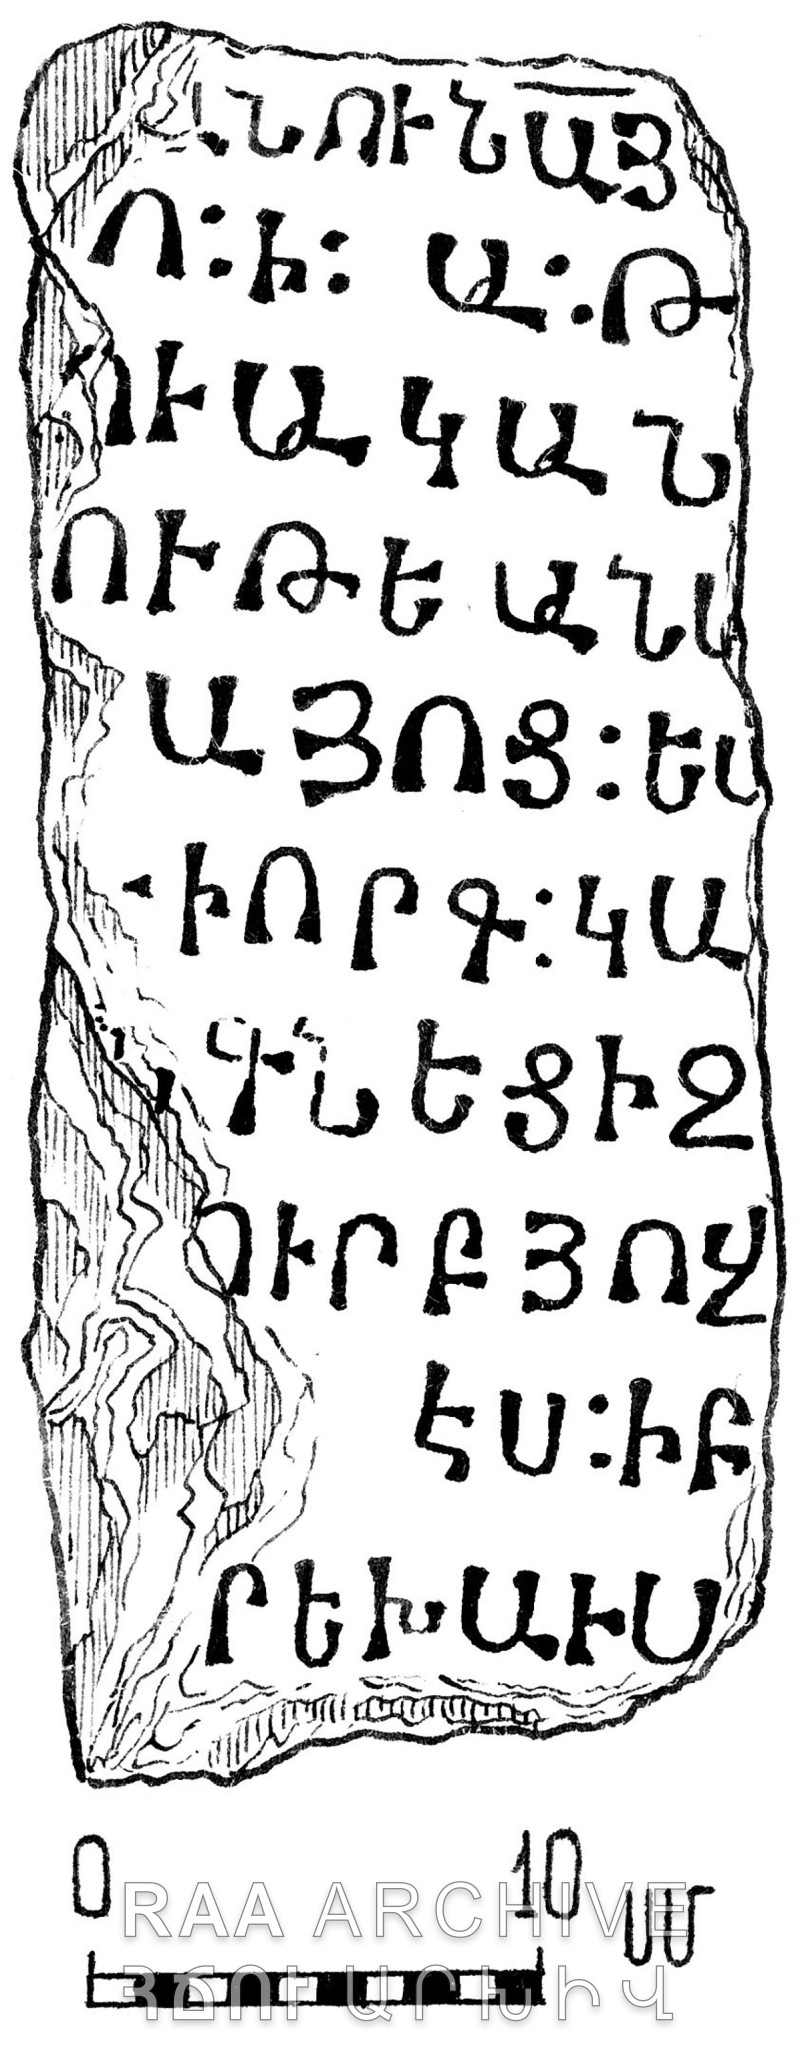 ԱՆՈՒՆԱՅ
Ո։Ի։ Ա։Թ
ՈՒԱԿԱՆ
ՈՒԹԵԱՆՍ
ԱՅՈՑ։ԵՍ
ԻՈՐԳ։ԿԱ
ԳՆԵՑԻԶ
ՈՒՐԲՅՈՎ
ԷՍ։ԻԲ
ՐԵԽԱՒՍ
0 10 սմ
RAA ARCHIVE
ՀՃՈՒ ԱՐԽԻՎ